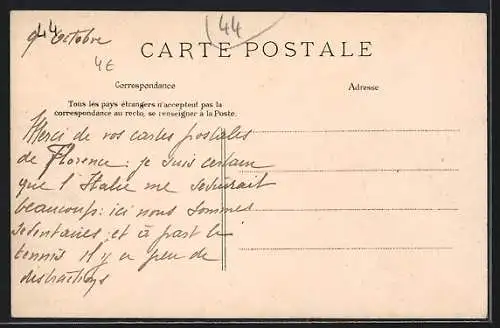 44
9 Octobre
(44)
4€
CARTE POSTALE
Correspondance
Adresse
Tous les pays étrangers n'acceptent pas la
correspondance au recto, se renseigner à la Poste.
Merci de vos cartes postales
de Florence : je suis certain
que l'Italie me séduirait
beaucoup : ici nous sommes
sedentaires et à part le
tennis il y a peu de
distractions